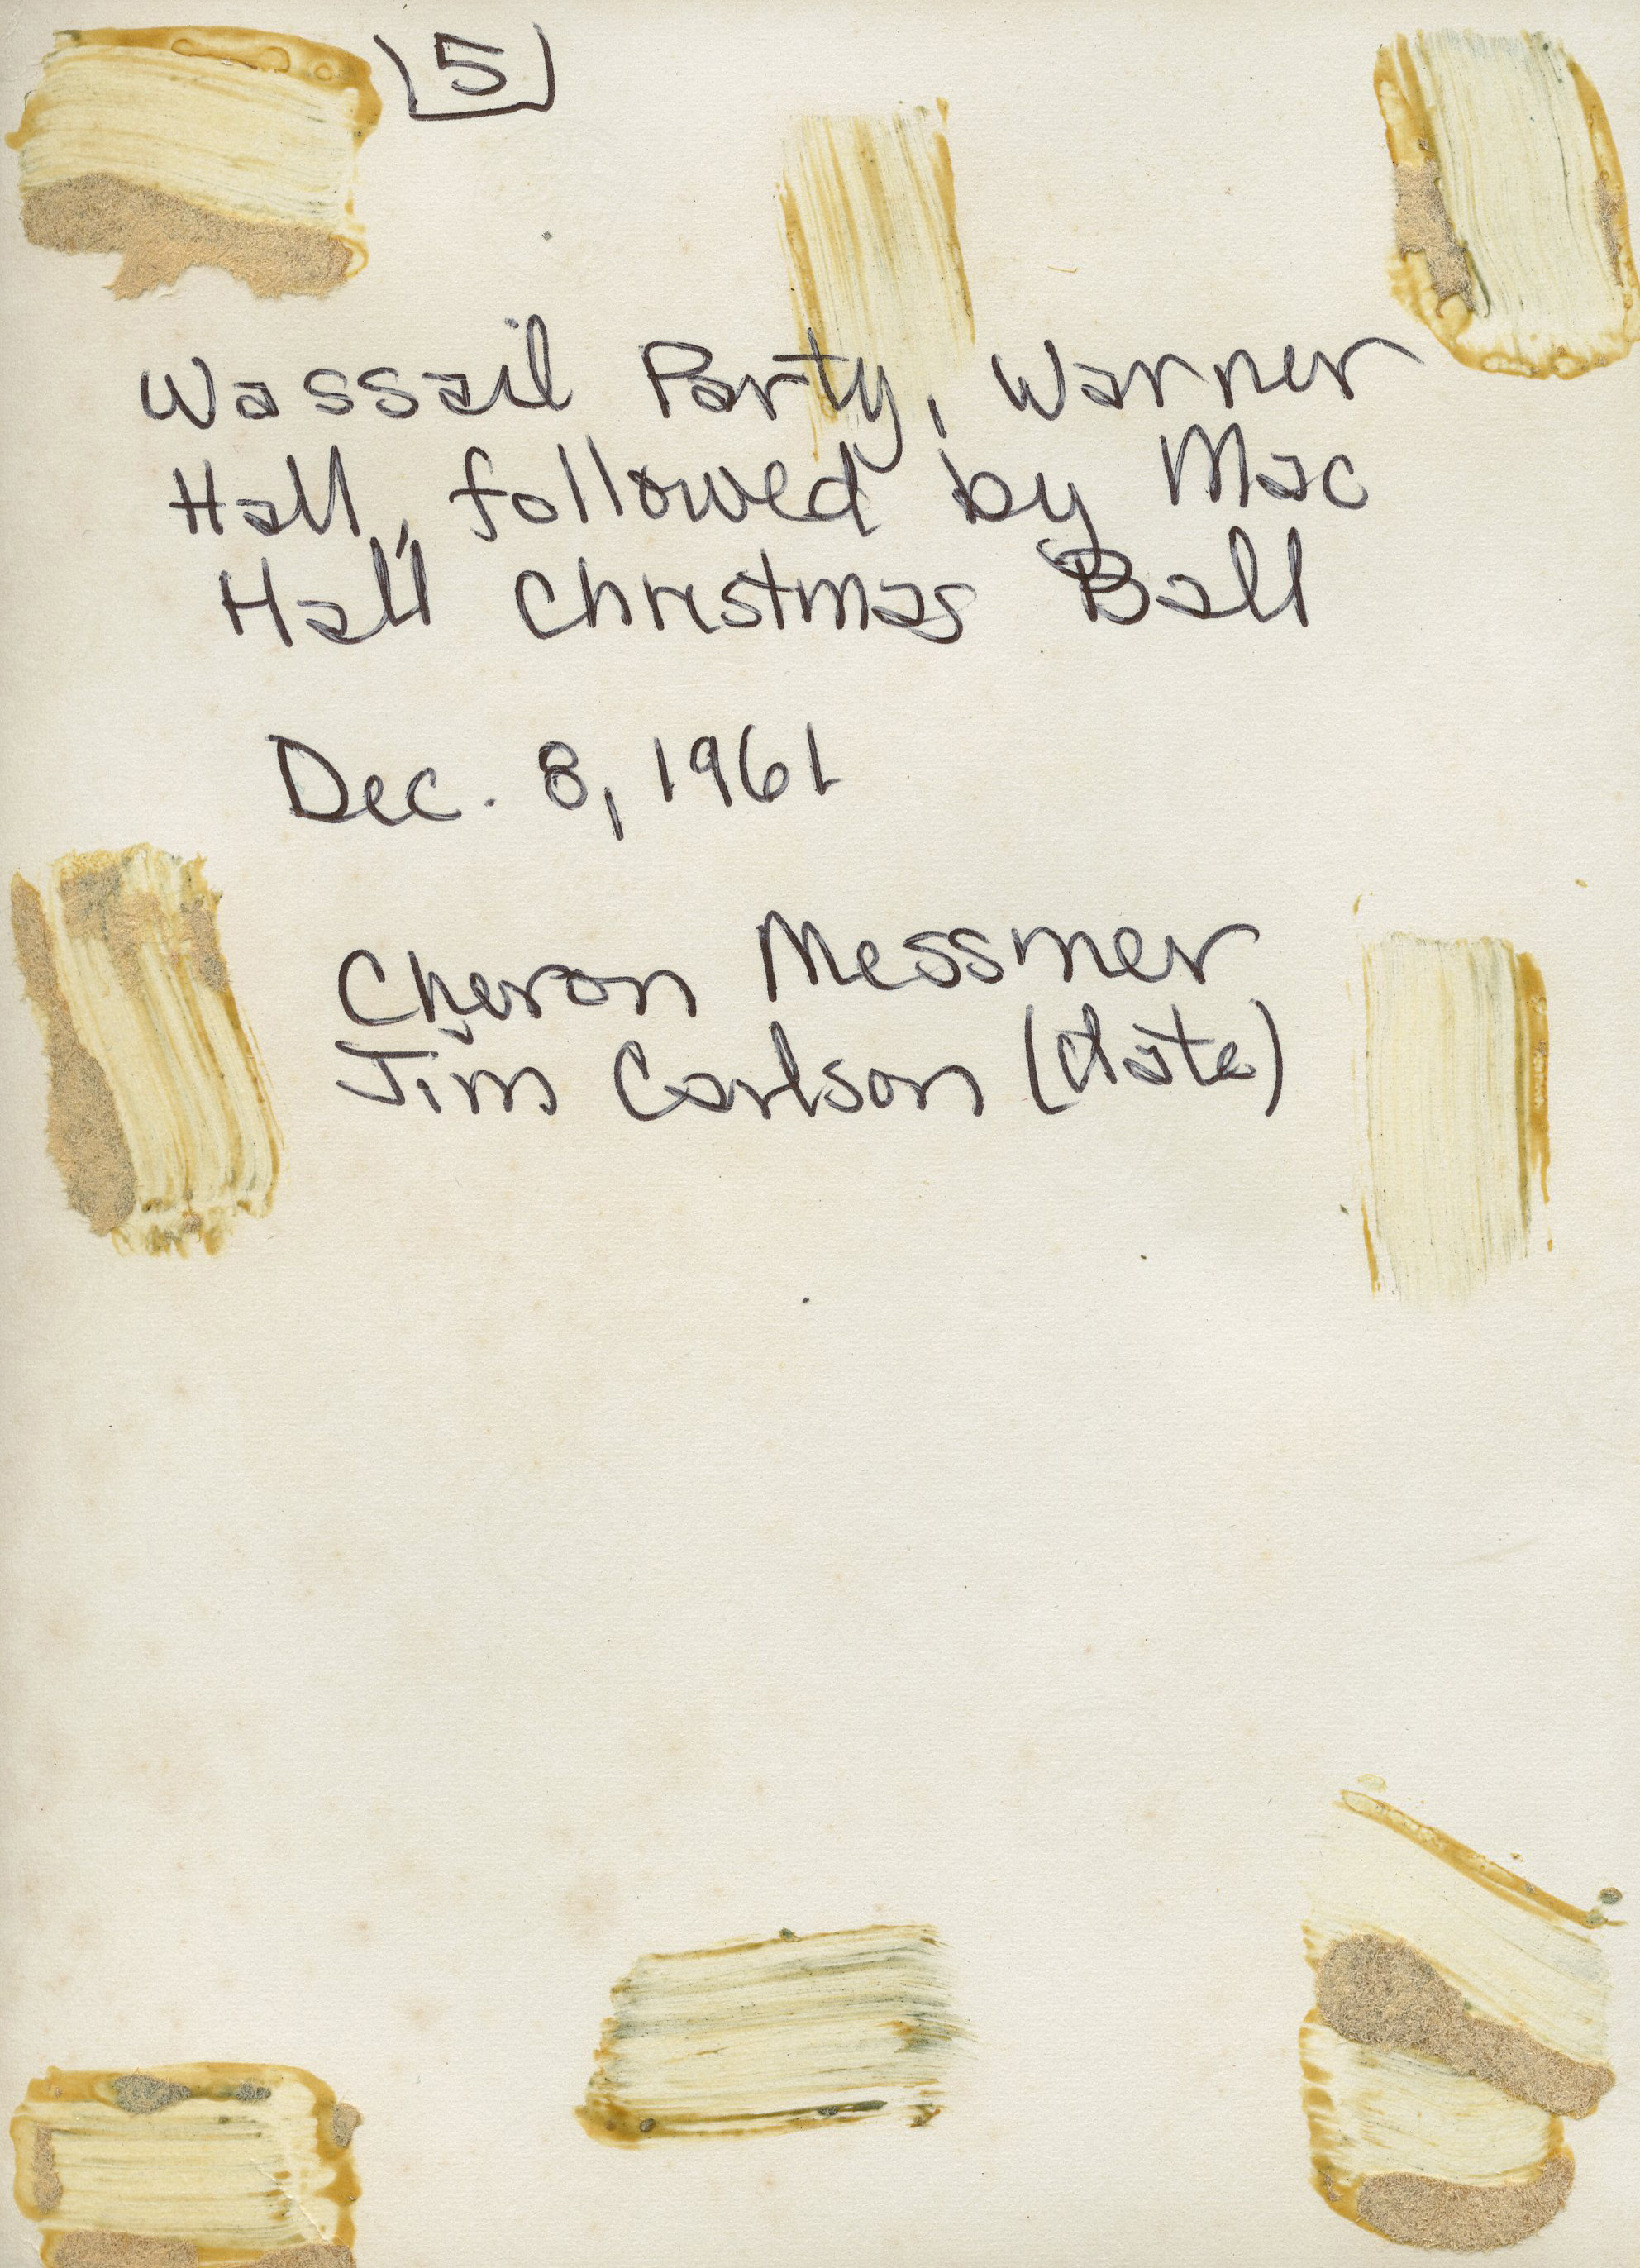 5
Wassail Party, Warner
Hall, followed by Mac
Hall Christmas Ball
Dec. 8, 1961
Cheron Messmer
Jim Carlson (date)